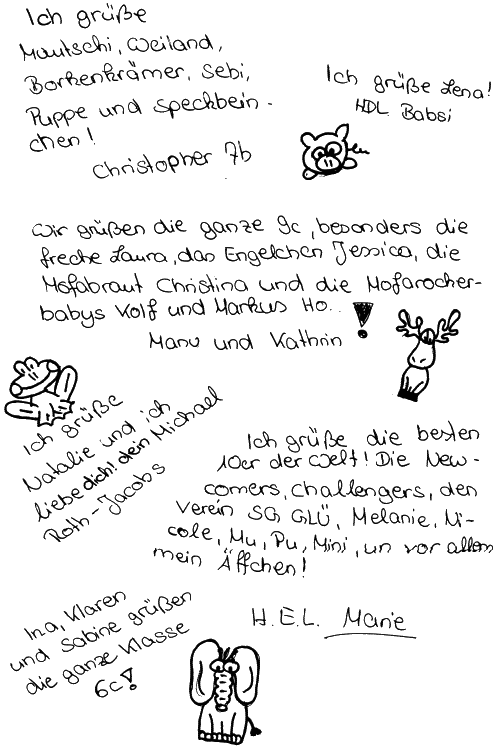 Ich grüße
Mautschi, Weiland,
Borkenkrämer, Sebi,
Puppe und Speckbein-
chen!
Christopher 7b
Ich grüße Lena!
HDL Babsi
Wir grüßen die ganze 9c, besonders die
freche Laura, das Engelchen Jessica, die
Mofabraut Christina und die Mofarocher-
babys Kolf und Markus Ho..!
Manu und Kathrin
Ich grüße
Natalie und ich
liebe dich! dein Michael
Roth-Jacobs
Ich grüße die besten
10er der Welt! Die New-
comers, Challengers, den
Verein SG GLÜ, Melanie, Ni-
cole, Mu, Pu, Mini, un vor allem
mein Äffchen!
H.E.L. Marie
Ina, Klaren
und Sabine grüßen
die ganze Klasse
6c!